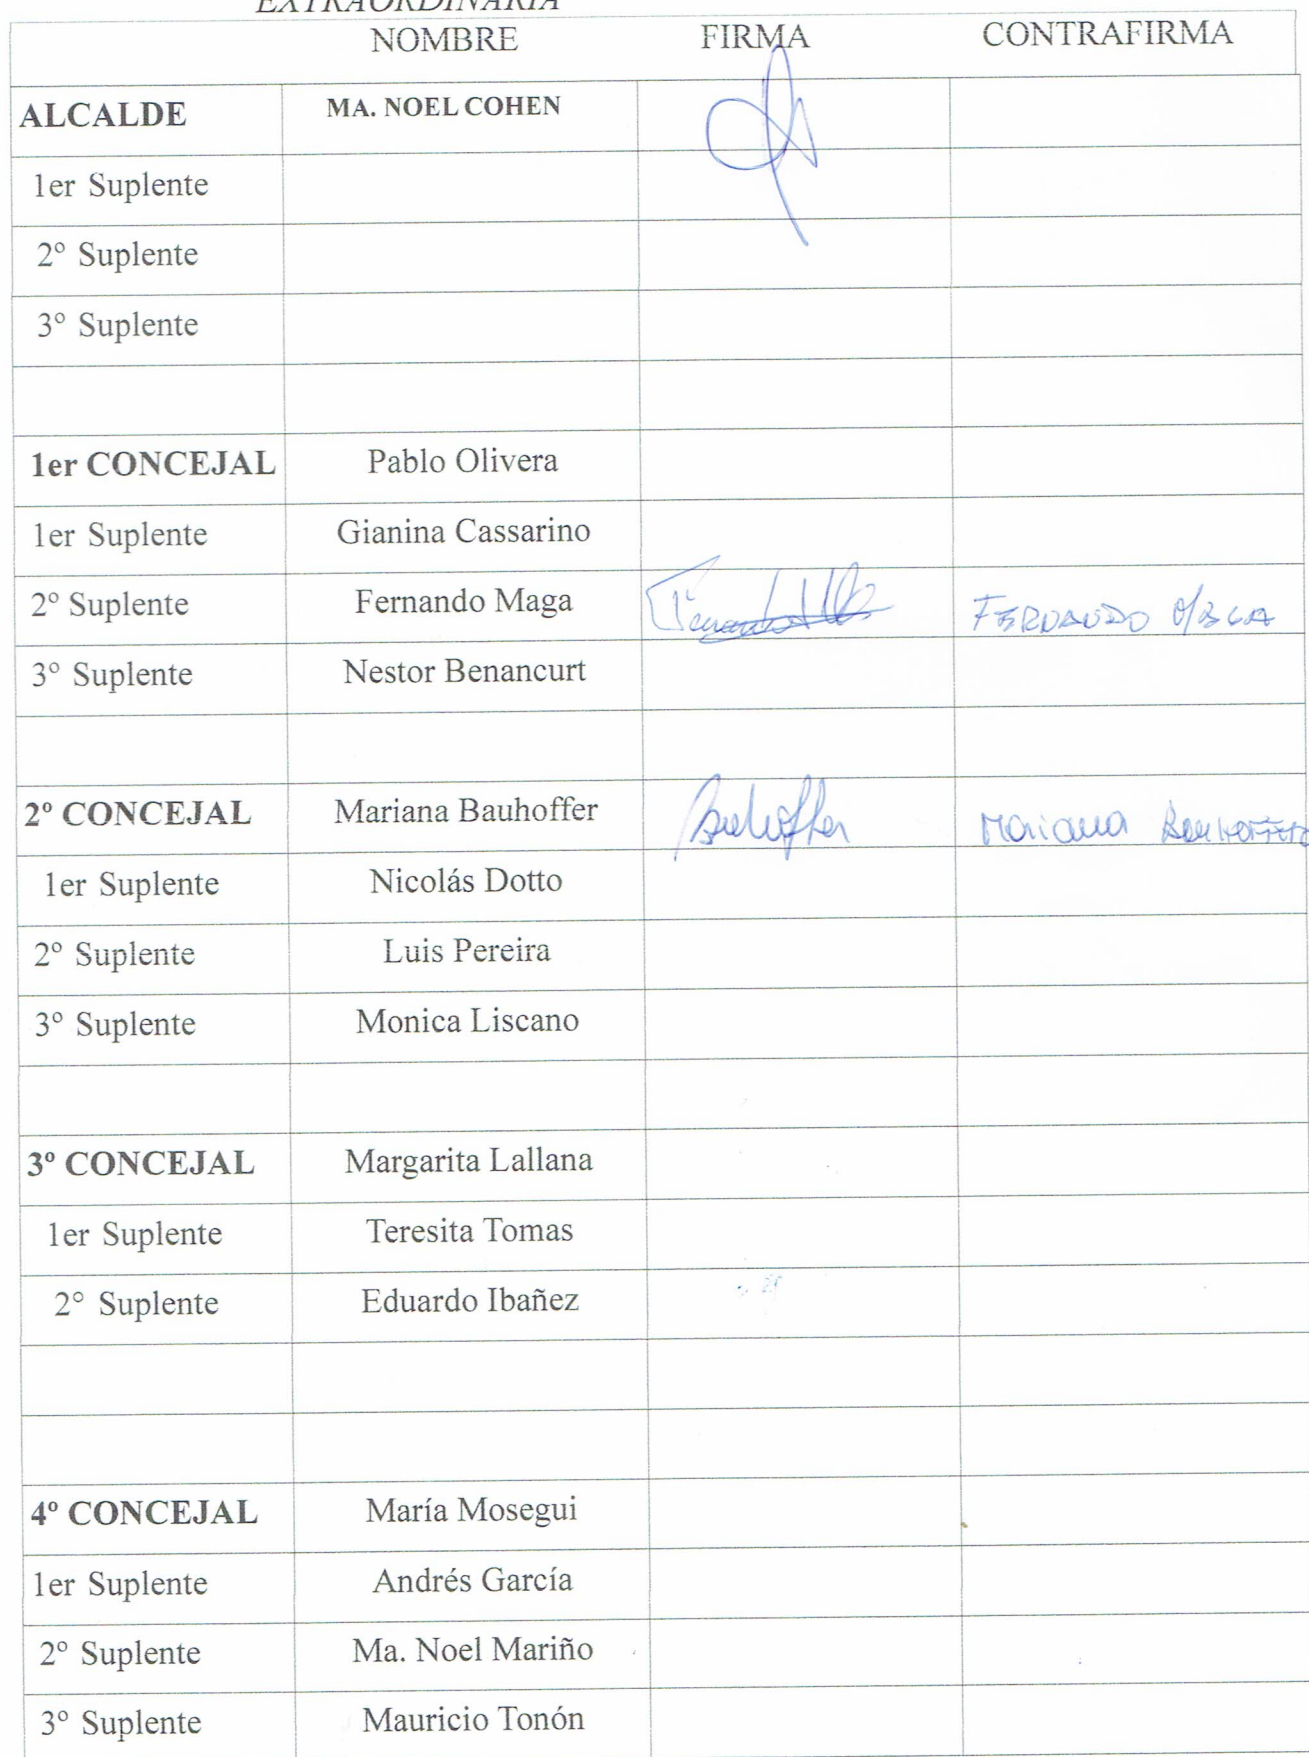 EXTRAORDINARIA
NOMBRE FIRMA CONTRAFIRMA
ALCALDE MA. NOEL COHEN
1er Suplente
2º Suplente
3º Suplente
1er CONCEJAL Pablo Olivera
1er Suplente Gianina Cassarino
2º Suplente Fernando Maga FERNANDO MAGA
3º Suplente Nestor Benancurt
2º CONCEJAL Mariana Bauhoffer Bauhoffer Mariana Bauhoffer
1er Suplente Nicolás Dotto
2º Suplente Luis Pereira
3º Suplente Monica Liscano
3º CONCEJAL Margarita Lallana
1er Suplente Teresita Tomas
2° Suplente Eduardo Ibañez
4º CONCEJAL María Mosegui
1er Suplente Andrés García
2º Suplente Ma. Noel Mariño
3º Suplente Mauricio Tonón